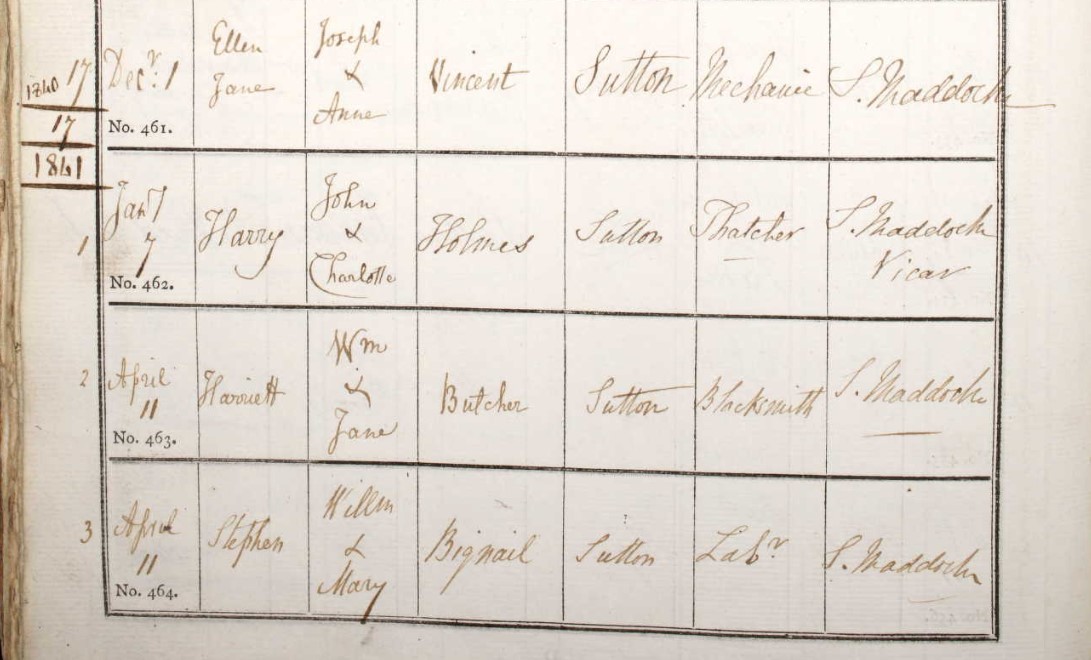 1840 17 Decr. 1 Ellen Jane Joseph & Anne Vincent Sutton Mechanic S. Maddock
17 No. 461.
1841
1 Jany 7 Harry John & Charlotte Holmes Sutton Thatcher S. Maddock Vicar
No. 462.
2 April 11 Harriett Wm & Jane Butcher Sutton Blacksmith S. Maddock
No. 463.
3 April 11 Stephen Willm & Mary Bignail Sutton Labr S. Maddock
No. 464.